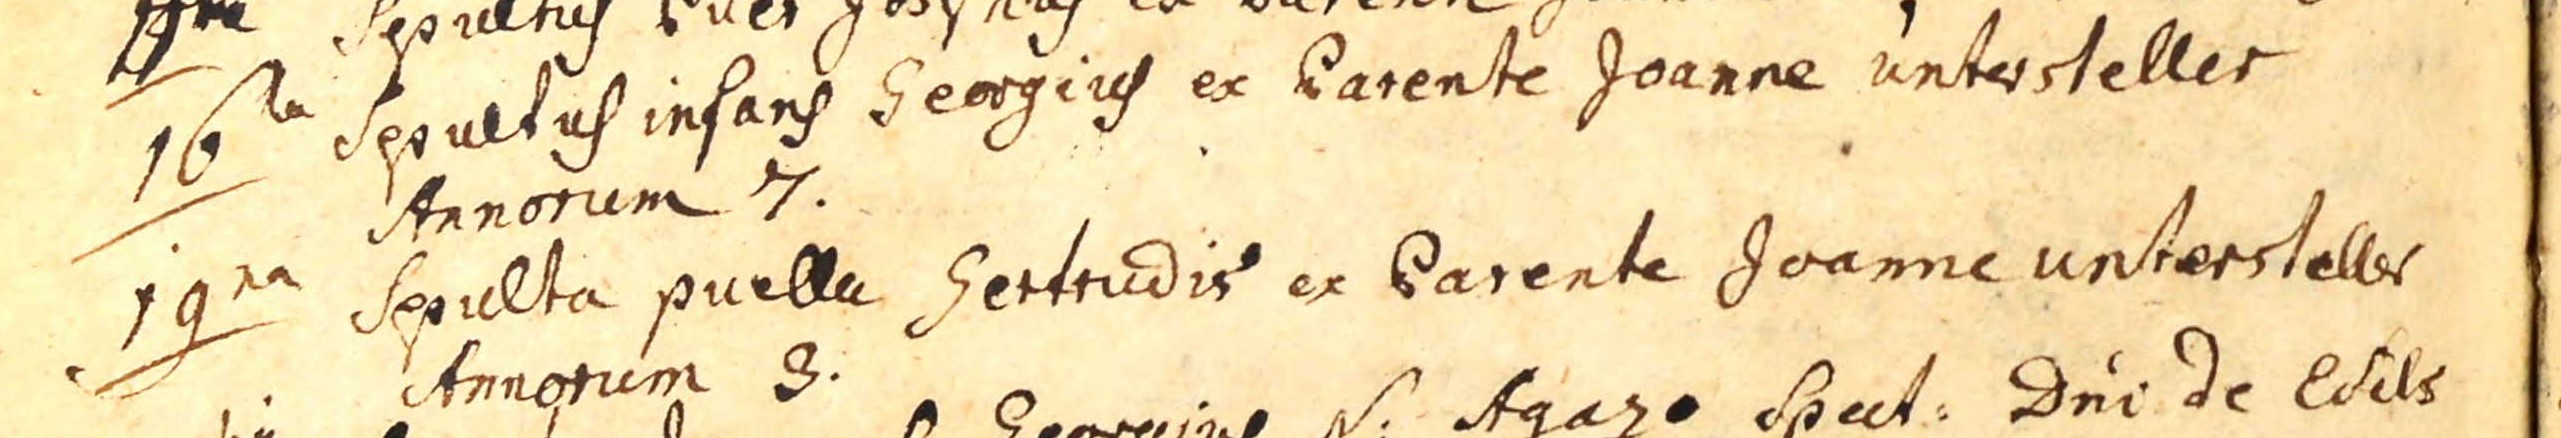 Sepultus Puer Josephus ex Parente
16ta Sepultus infans Georgius ex Parente Joanne untersteller
Annorum 7.
19na Sepulta puella Gertrudis ex Parente Joanne untersteller
Annorum 3.
Georgius N. Agazo Spect: Dni de